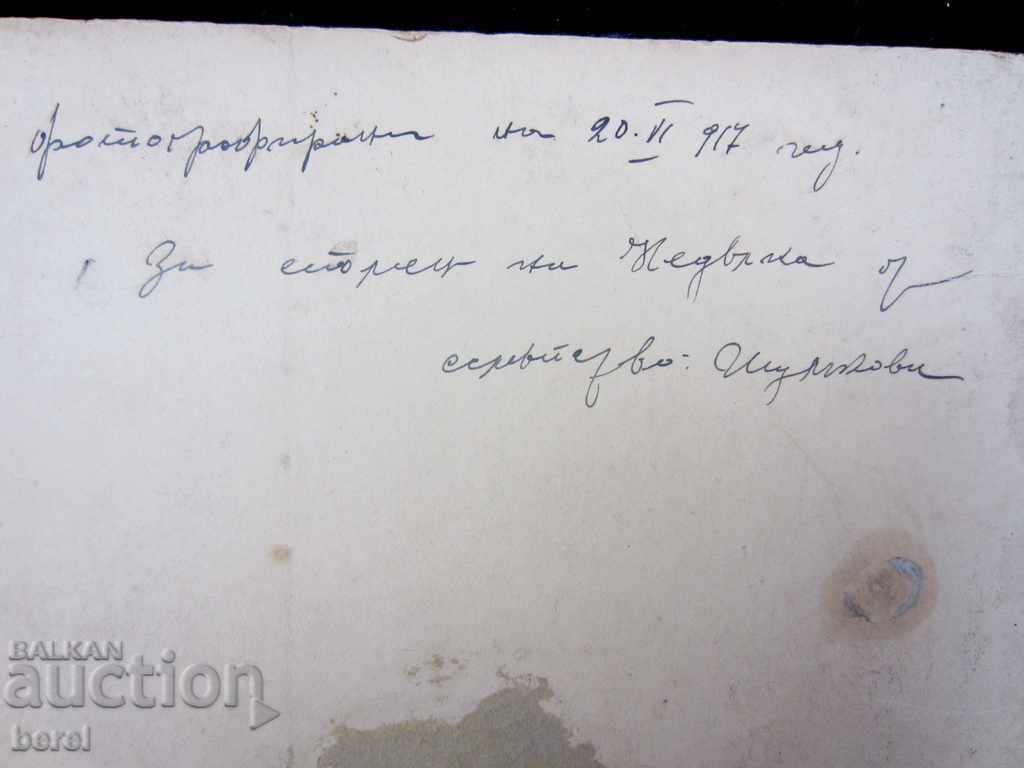 фотографирани на 20.VI 917 год.
За спомен на Недълка от
семейство: Шулекови
BALKAN
auction
berel